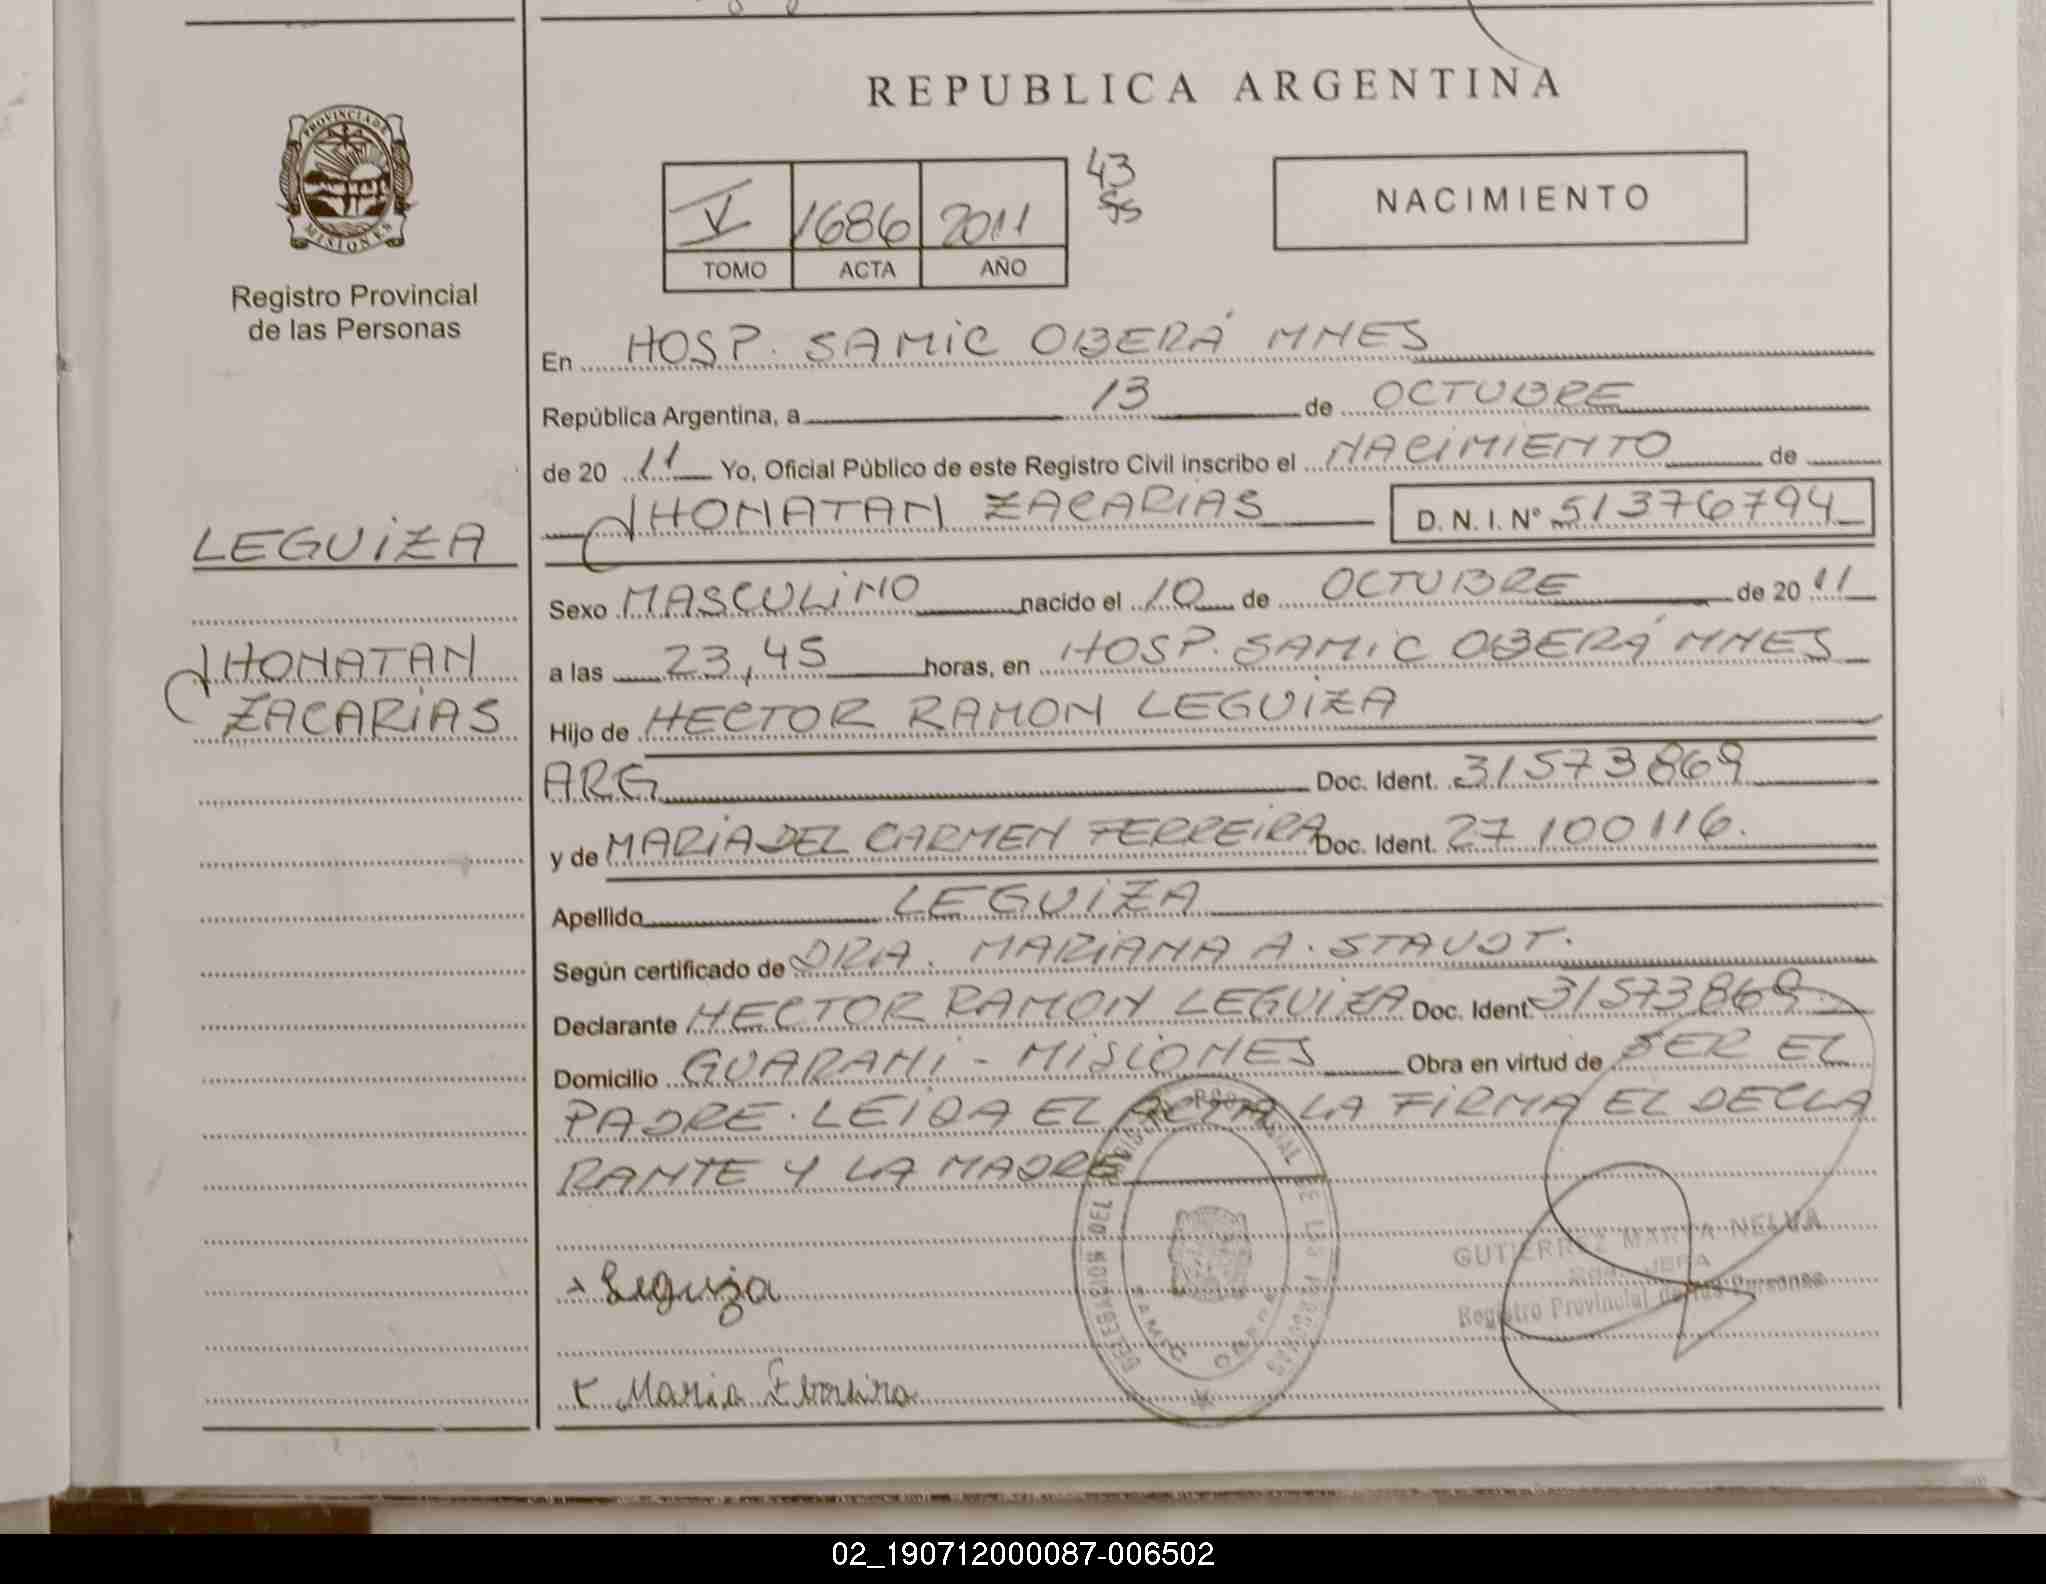 REPUBLICA ARGENTINA
PROVINCIA DE
MISIONES
Registro Provincial
de las Personas
V 1686 2011
TOMO ACTA AÑO
43
NACIMIENTO
En HOSP. SAMIC OBERÁ MNES
República Argentina, a 13 de OCTUBRE
de 20 11 Yo, Oficial Público de este Registro Civil inscribo el NACIMIENTO de
JHONATAN ZACARIAS D. N. I. Nº 51376794
LEGUIZA
JHONATAN
ZACARIAS
Sexo MASCULINO nacido el 10 de OCTUBRE de 20 11
a las 23,45 horas, en HOSP. SAMIC OBERÁ MNES
Hijo de HECTOR RAMON LEGUIZA
ARG Doc. Ident. 31573869
y de MARIA DEL CARMEN FERREIRA Doc. Ident. 27100116.
Apellido LEGUIZA
Según certificado de DRA. MARIANA A. STAUDT.
Declarante HECTOR RAMON LEGUIZA Doc. Ident. 31573869
Domicilio GUARANI - MISIONES Obra en virtud de SER EL
PADRE. LEIDA EL ACTA LA FIRMA EL DECLA
RANTE Y LA MADRE
DELEGACION DEL REGISTRO PROVINCIAL DE LAS PERSONAS
GUTIERREZ MARTA NELVA
JEFA
Registro Provincial de las Personas
Leguiza
Maria
02_190712000087-006502